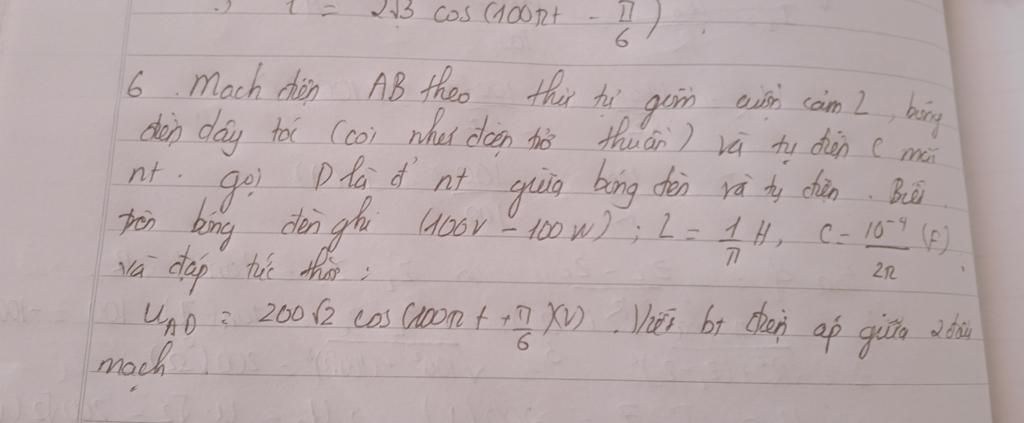 i = 2√3 cos(100πt - π/6)
6. Mạch điện AB theo thứ tự gồm cuộn cảm L, bóng
đèn dây tóc (coi như điện trở thuần) và tụ điện C mắc
nt. gọi D là đ' nt giữa bóng đèn và tụ điện. Biết
trên bóng đèn ghi (100V - 100W); L = 1/π H, C = 10⁻⁴/2π (F)
và đáp tức thời:
u_AD = 200√2 cos(100πt + π/6)(V). Viết bt điện áp giữa 2 đầu
mạch